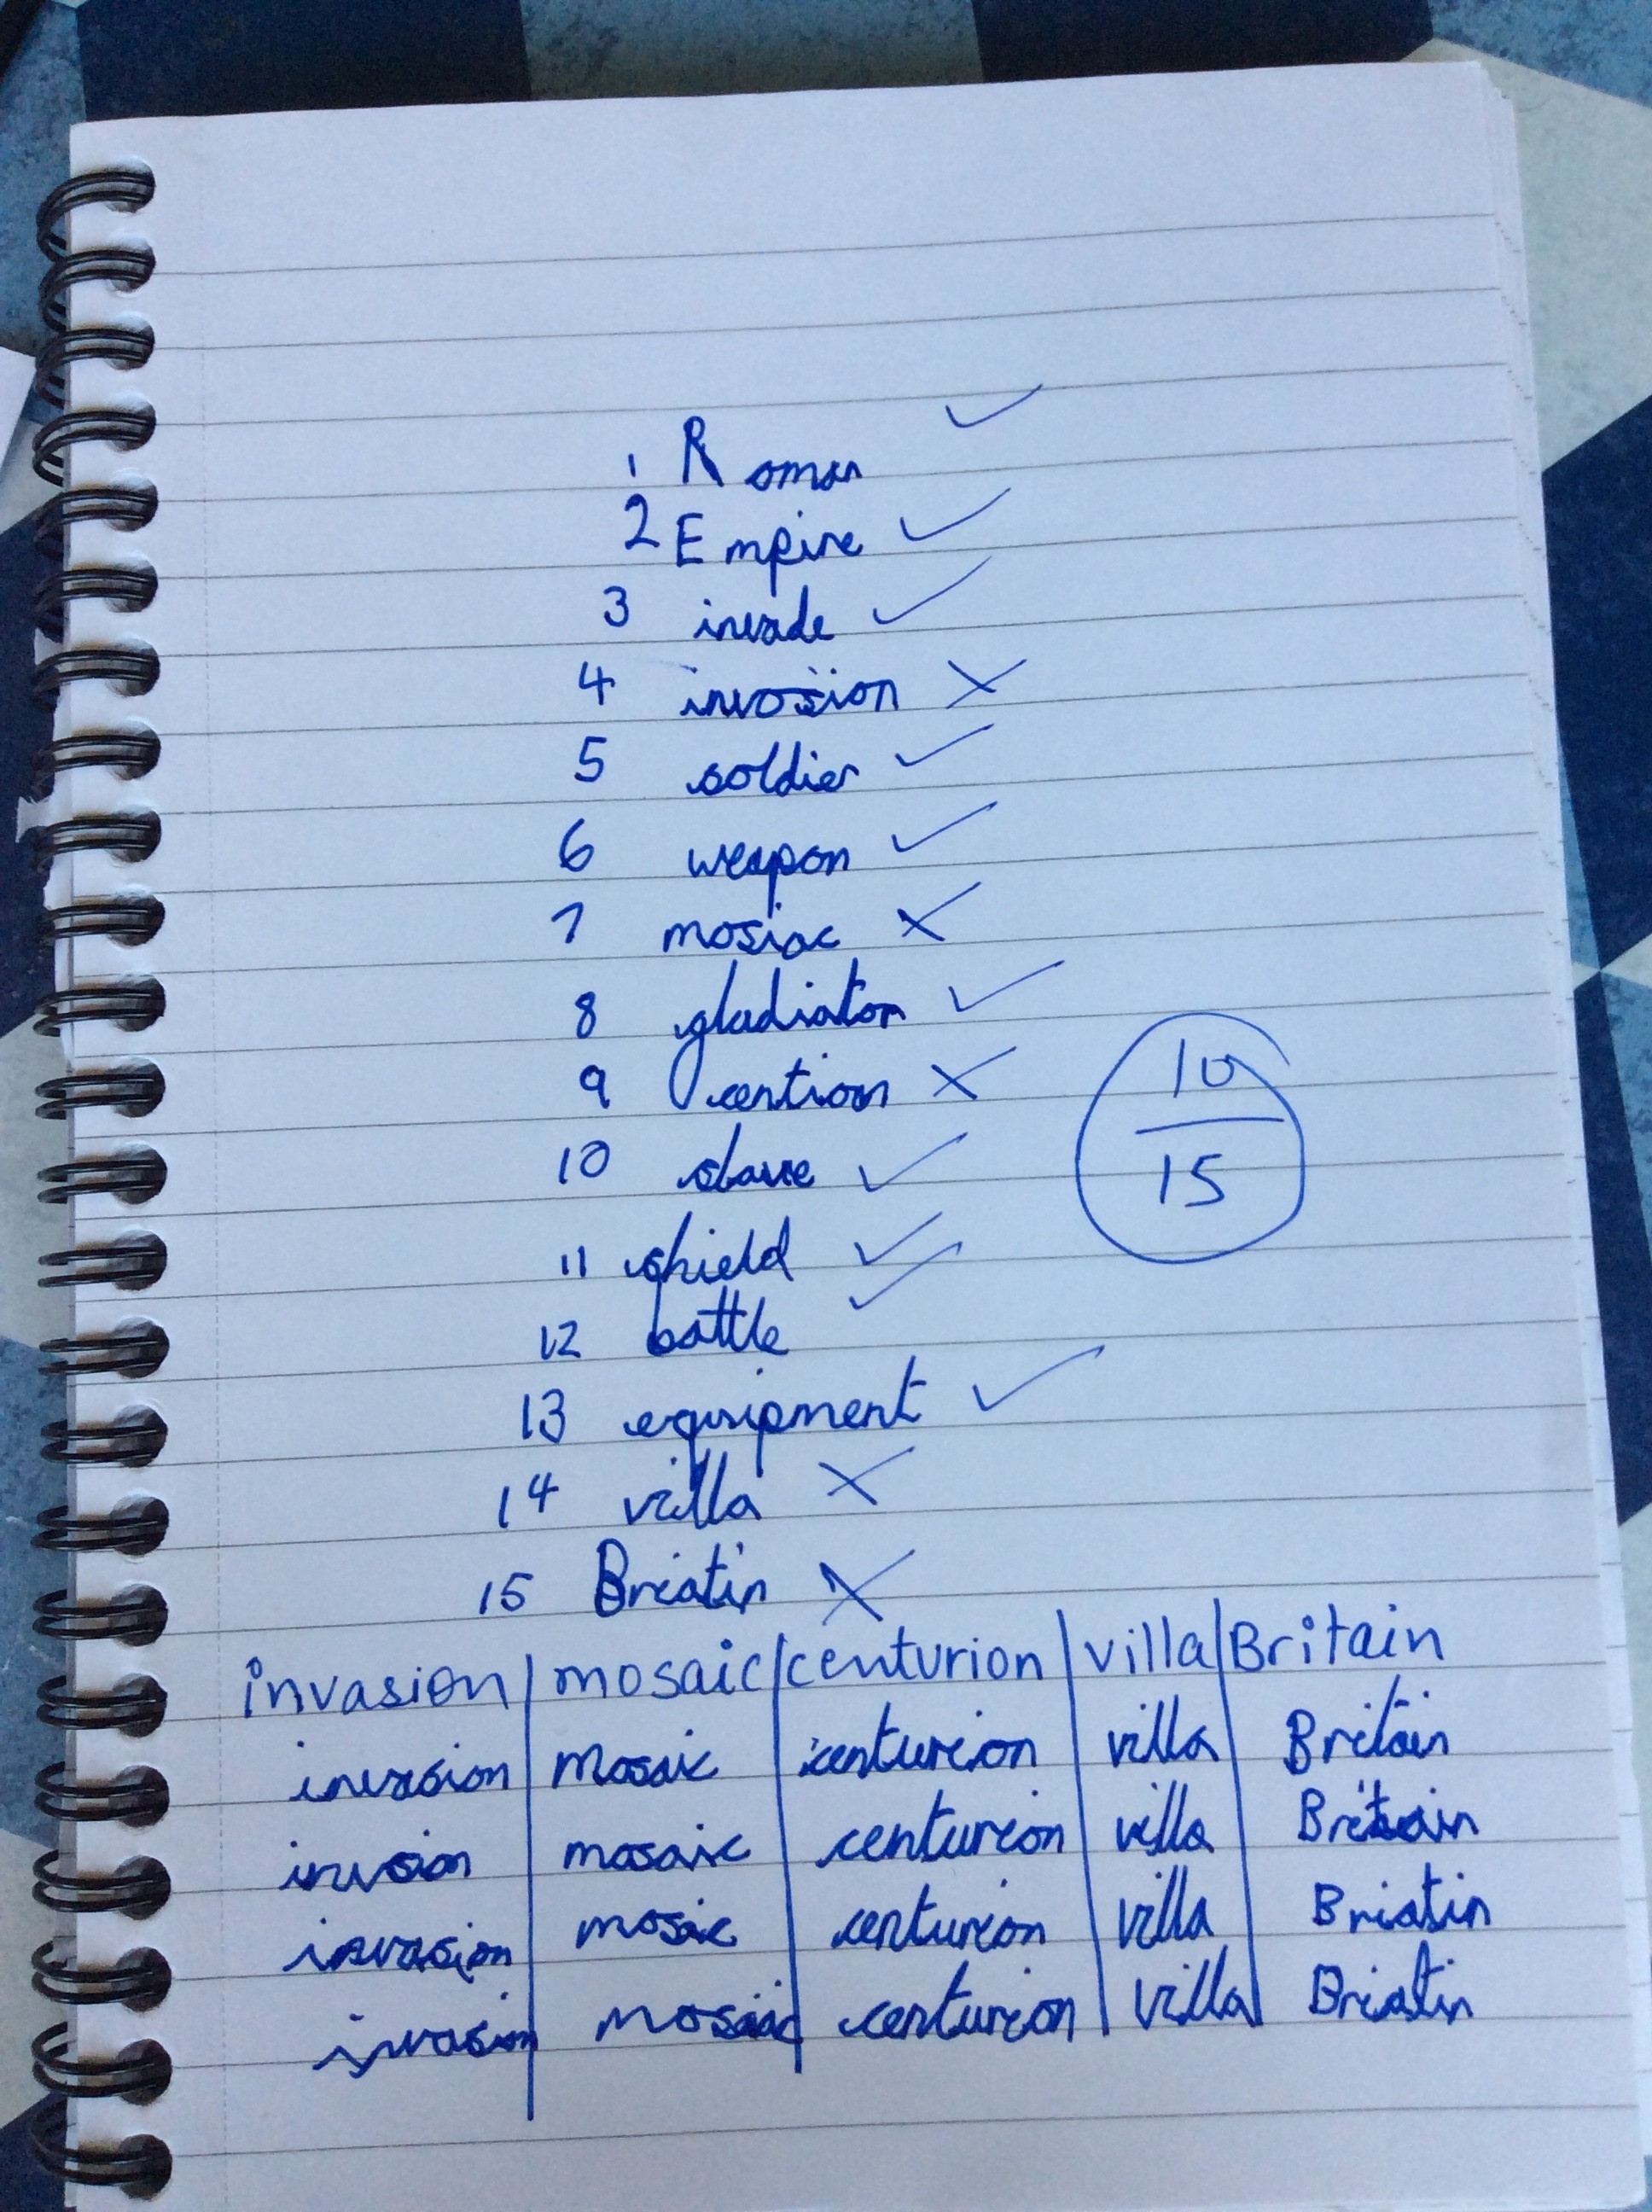 1 Roman ✓
2 Empire ✓
3 invade ✓
4 invosion ✗
5 soldier ✓
6 weapon ✓
7 mosiac ✗
8 gladiator ✓
9 ✗
10 slave ✓
11 shield ✓
12 battle ✓
13 equipment ✓
14 villa ✗
15 Briatin ✗
10
15
invasion | mosaic | centurion | villa | Britain
invasion mosaic centurion villa Britain
invsion mosaic centurion villa Britain
invasion mosaic centurion villa Briatin
invasion mosaic centurion villa Briatin